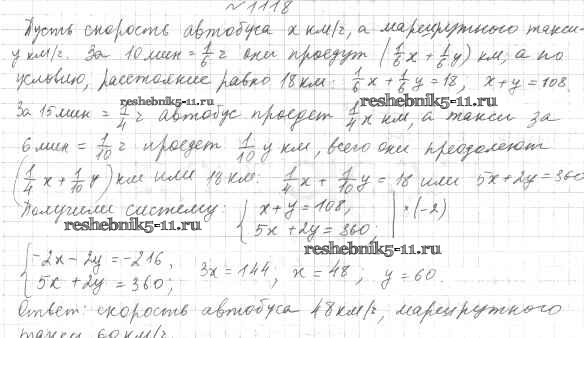 № 1118
Пусть скорость автобуса x км/ч, а маршрутного такси -
y км/ч. За 10 мин = 1/6 ч они проедут (1/6 x + 1/6 y) км, а по
условию, расстояние равно 18 км: 1/6 x + 1/6 y = 18, x + y = 108.
За 15 мин = 1/4 ч автобус проедет 1/4 x км, а такси за
reshebnik5-11.ru reshebnik5-11.ru
6 мин = 1/10 ч проедет 1/10 y км, всего они преодолеют
(1/4 x + 1/10 y) км или 18 км: 1/4 x + 1/10 y = 18 или 5x + 2y = 360
Получили систему: { x + y = 108, | · (-2)
5x + 2y = 360;
reshebnik5-11.ru reshebnik5-11.ru
{ -2x - 2y = -216,
5x + 2y = 360; 3x = 144; x = 48; y = 60.
Ответ: скорость автобуса 48 км/ч, маршрутного
такси 60 км/ч.